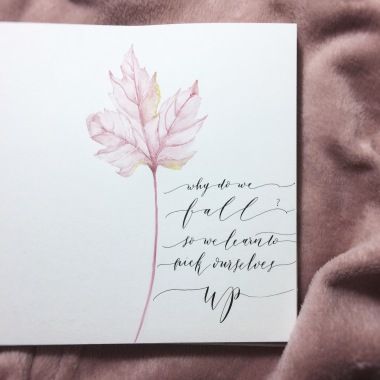 why do we
fall?
so we learn to
pick ourselves
up